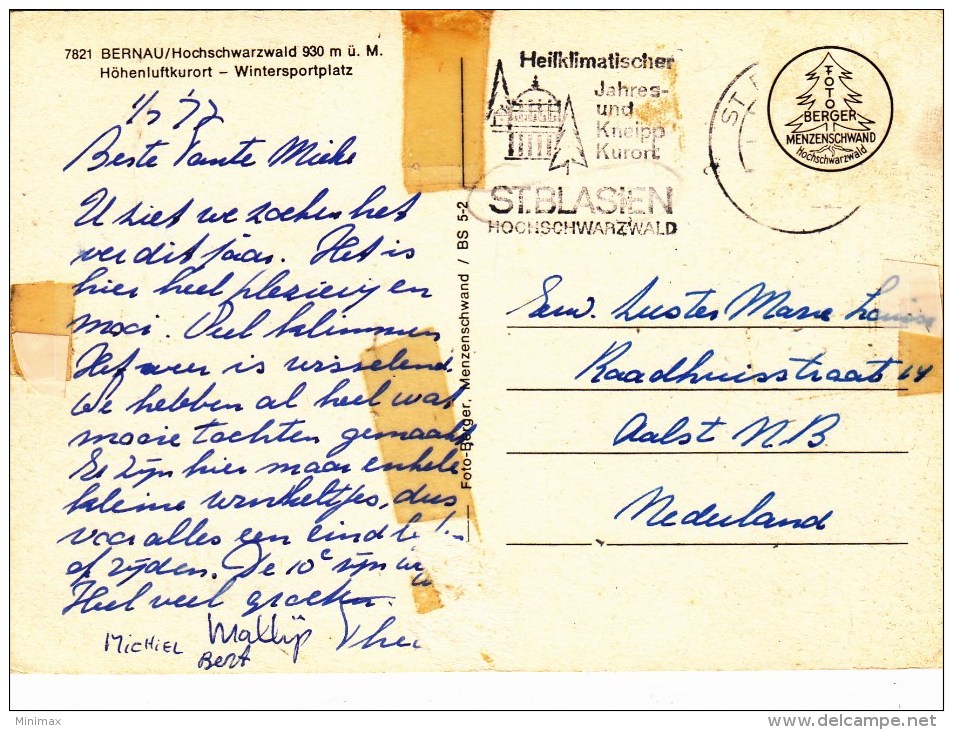 7821 BERNAU/Hochschwarzwald 930 m ü. M.
Höhenluftkurort – Wintersportplatz
Beste Tante Mieke
U ziet we zoeken het
ver dit jaar. Het is
hier heel plezierig en
mooi. Veel klimmen
Het weer is wisselend.
We hebben al heel wat
mooie tochten gemaakt
Er zijn hier maar enkele
kleine winkeltjes, dus
voor alles een eind
of rijden. De 10e zijn
Heel veel groeten.
MICHIEL
Bert
Foto-Berger, Menzenschwand / BS 5-2
Heilklimatischer
Jahres-
und
Kneipp
Kurort
ST.BLASIEN
HOCHSCHWARZWALD
ST.
FOTO
BERGER
MENZENSCHWAND
Hochschwarzwald
Eerw. Zuster Marie Louise
Raadhuisstraat 64
Aalst N.B
Nederland
Minimax
delcampe.net